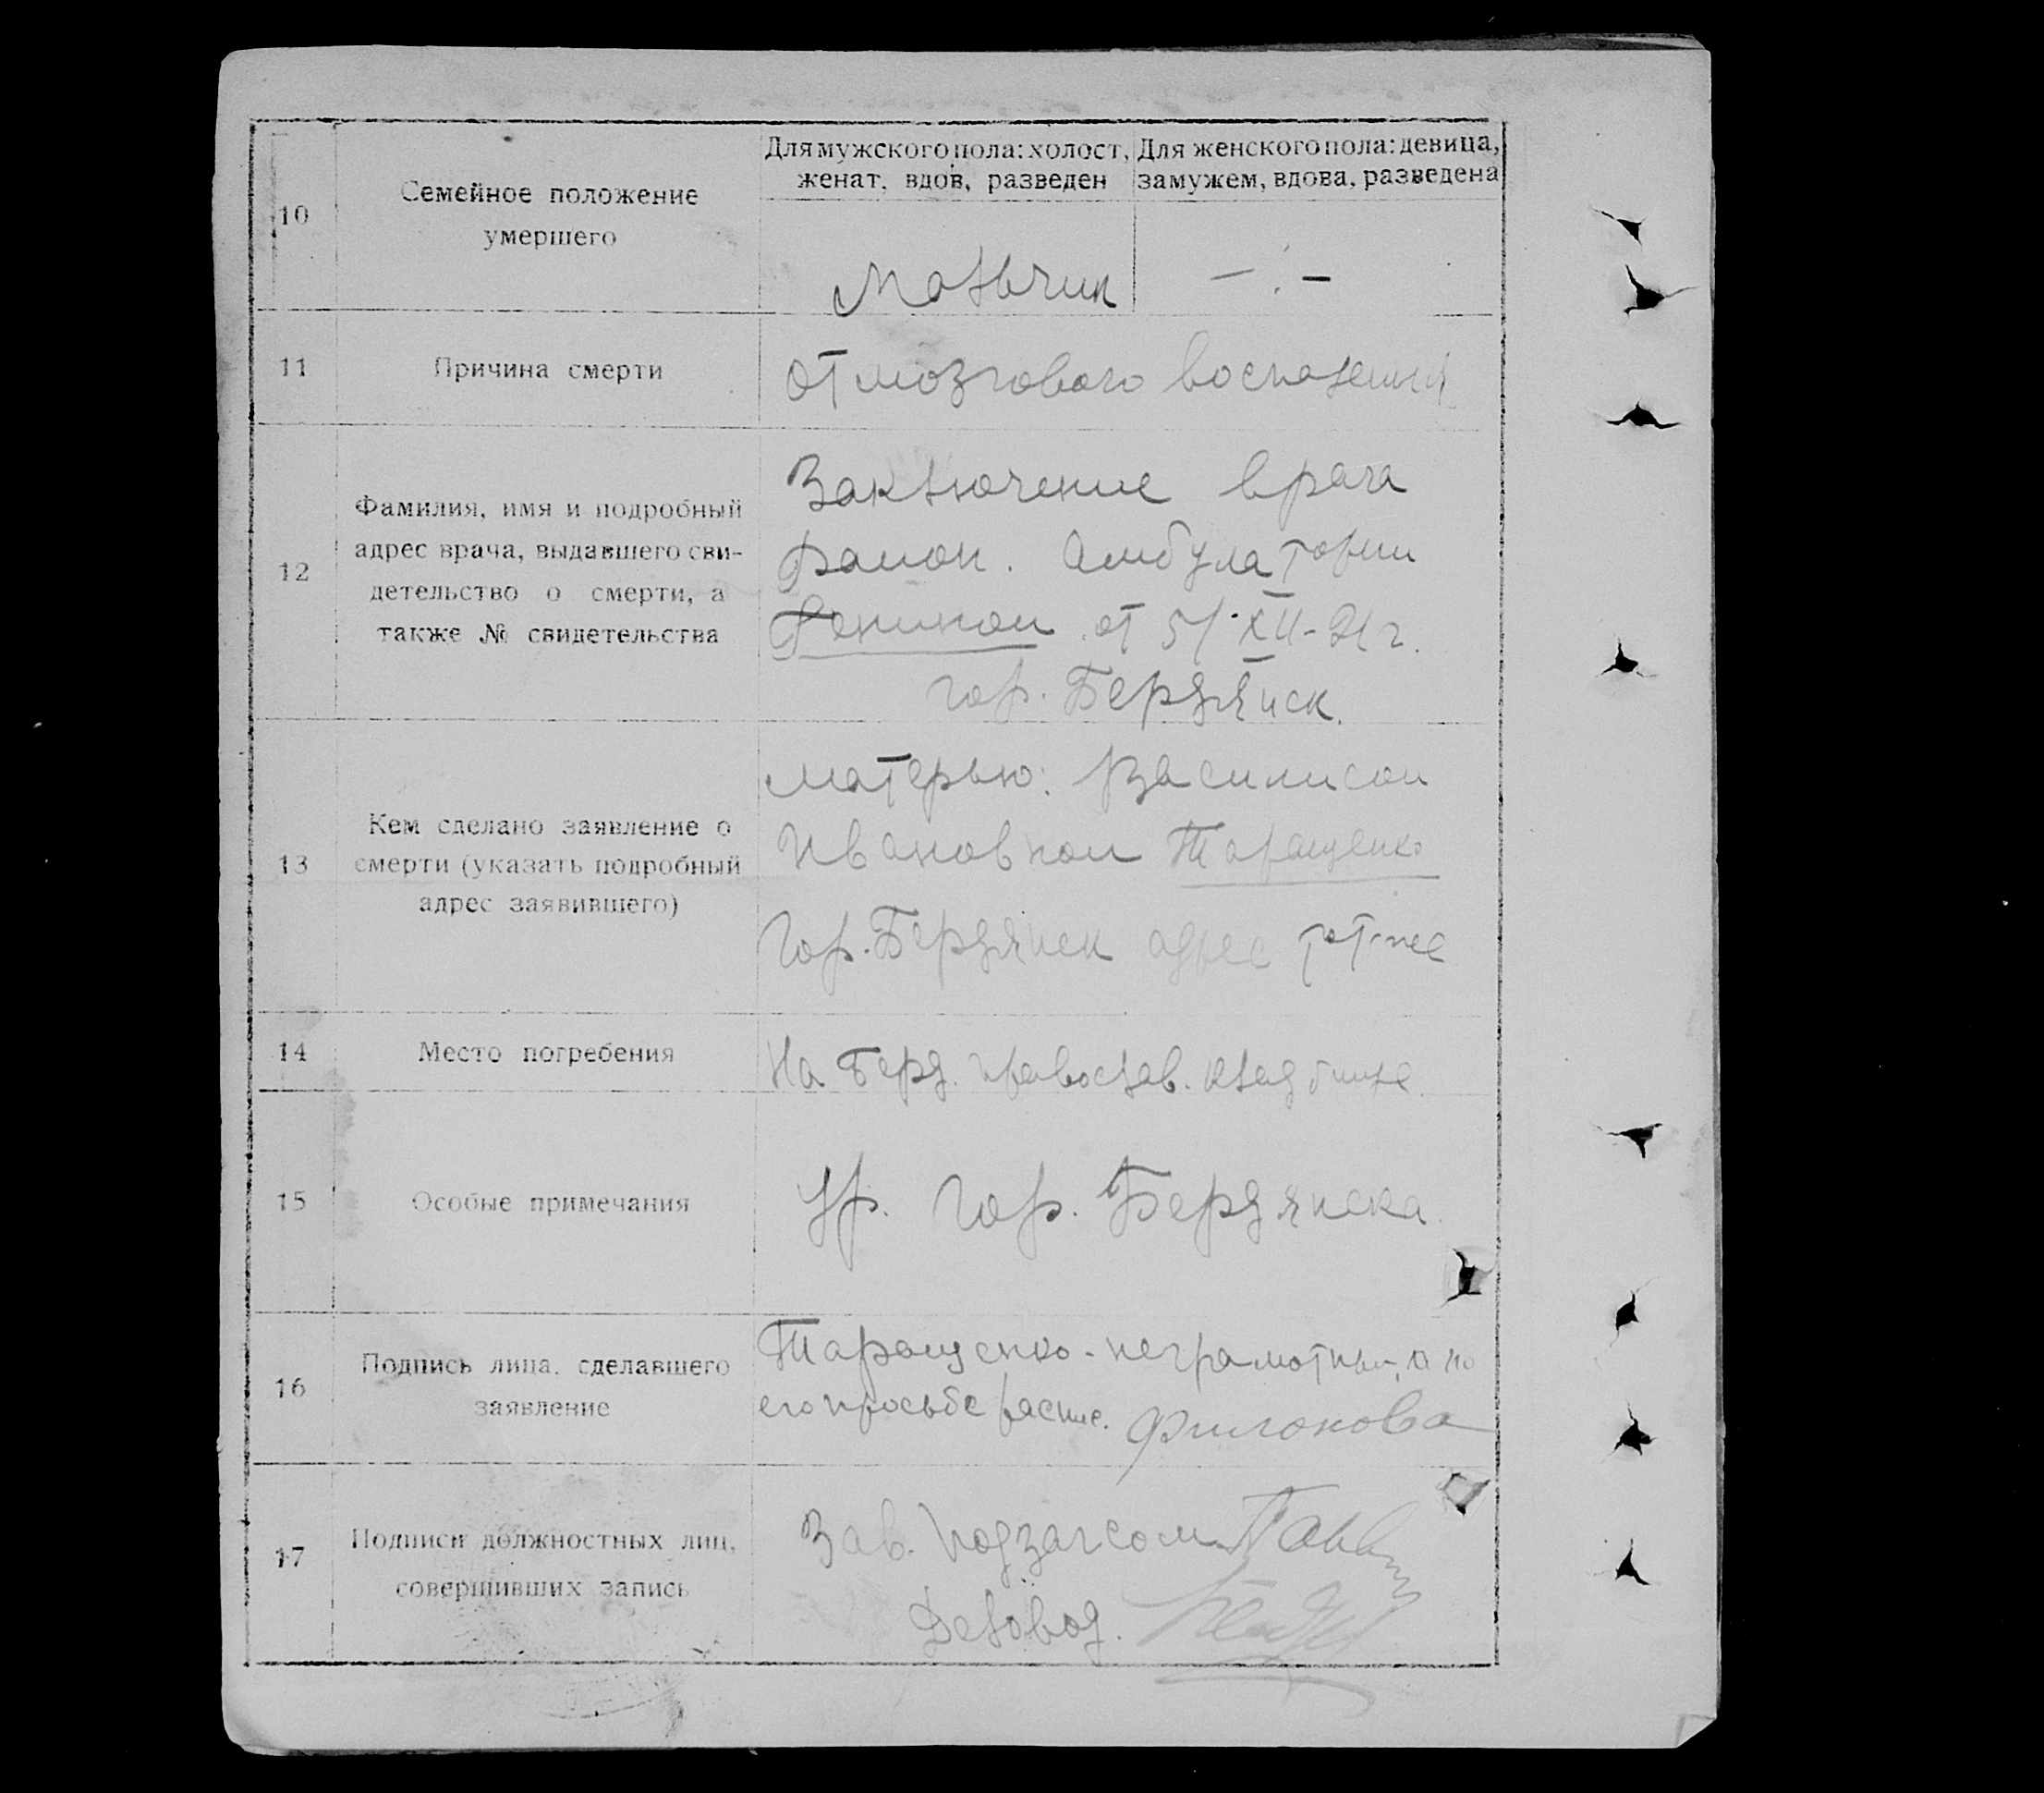 Для мужского пола: холост, женат, вдов, разведен
Для женского пола: девица, замужем, вдова, разведена
10
Семейное положение
умершего
Мальчик
— . —
11
Причина смерти
от мозгового воспаления
12
Фамилия, имя и подробный
адрес врача, выдавшего сви-
детельство о смерти, а
также № свидетельства
Заключение врача
Район. Амбулатории
от 5/XII-21 г.
гор. Бердянск.
13
Кем сделано заявление о
смерти (указать подробный
адрес заявившего)
матерью: Василисой
Ивановной Таращенко
Гор. Бердянск адрес тот-же
14
Место погребения
На Берд. православ. кладбище.
15
Особые примечания
Гр. гор. Бердянска.
16
Подпись лица, сделавшего
заявление
Таращенко - неграмотный, а по
его просьбе распис. Филонова
17
Подписи должностных лиц,
совершивших запись
Зав. Подзагсом
Деловод.